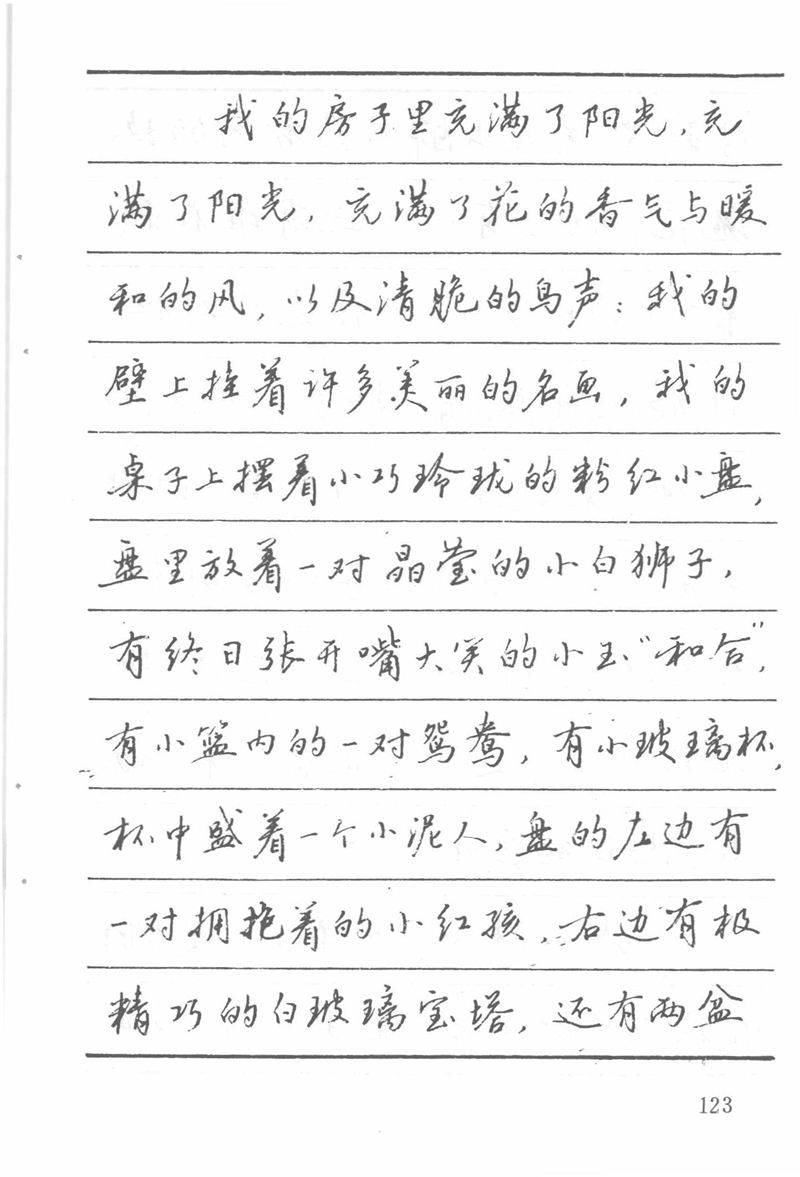 我的房子里充满了阳光,充
满了阳光,充满了花的香气与暖
和的风,以及清脆的鸟声;我的
壁上挂着许多美丽的名画,我的
桌子上摆着小巧玲珑的粉红小盘,
盘里放着一对晶莹的小白狮子,
有终日张开嘴大笑的小玉“和合”,
有小篮内的一对鸳鸯,有小玻璃杯,
杯中盛着一个小泥人,盘的左边有
一对拥抱着的小红孩,右边有极
精巧的白玻璃宝塔,还有两盆
123